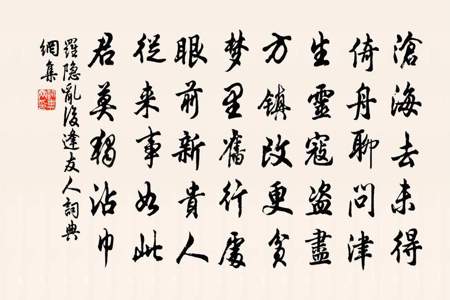 滄海去未得
倚舟聊問津
生靈寇盗盡
方鎮改更貧
梦里舊行處
眼前新貴人
従来事如此
君莫獨沾巾
羅隐亂後逢友人詞典
網集